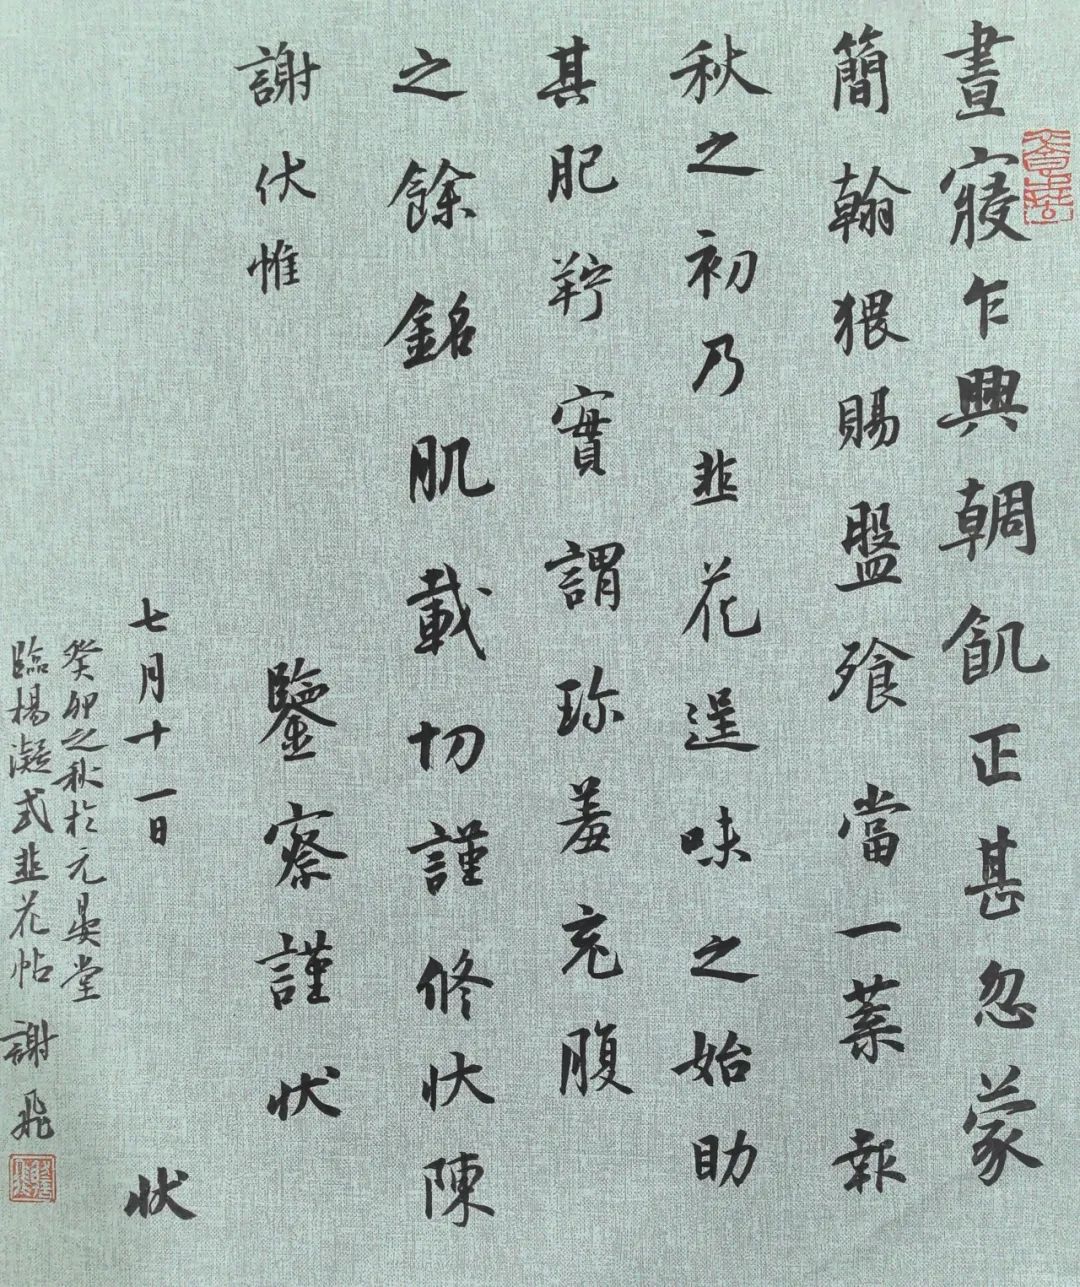 晝寢乍興輖飢正甚忽蒙
簡翰猥賜盤飱當一葉報
秋之初乃韭花逞味之始助
其肥羜實謂珎羞充腹
之餘銘肌載切謹修狀陳
謝伏惟
鑒察謹狀
七月十一日 狀
癸卯之秋於元晏堂
臨楊凝式韭花帖 謝飛